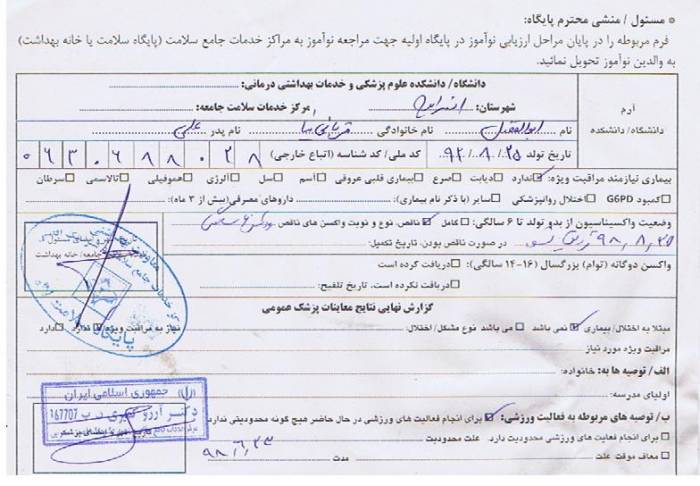 * مسئول / منشی محترم پایگاه:
فرم مربوطه را در پایان مراحل ارزیابی نوآموز در پایگاه اولیه جهت مراجعه نوآموز به مراکز خدمات جامع سلامت (پایگاه سلامت یا خانه بهداشت)
به والدین نوآموز تحویل نمائید.
آرم
دانشگاه/ دانشکده
دانشگاه/ دانشکده علوم پزشکی و خدمات بهداشتی درمانی:
شهرستان: مرکز خدمات سلامت جامعه:
نام ابوالفضل نام خانوادگی نام پدر علی
تاریخ تولد ۹۲/۸/۲۵ کد ملی/ کد شناسه (اتباع خارجی) ۰۶۳۰۶۸۸۰۲۸
بیماری نیازمند مراقبت ویژه: ندارد دیابت صرع بیماری قلبی عروقی آسم سل آلرژی هموفیلی تالاسمی سرطان
کمبود G6PD اختلال روانپزشکی سایر (با ذکر نام بیماری): داروهای مصرفی(بیش از ۳ ماه):
وضعیت واکسیناسیون از بدو تولد تا ۶ سالگی: کامل ناقص، نوع و نوبت واکسن های ناقص
در صورت ناقص بودن، تاریخ تکمیل: ۹۸,۸,۲۵
واکسن دوگانه (توام) بزرگسال (۱۶-۱۴ سالگی): دریافت کرده است
دریافت نکرده است، تاریخ تلقیح:
جامعه/ خانه بهداشت
پایگاه سلامت
گزارش نهایی نتایج معاینات پزشک عمومی
مبتلا به اختلال/ بیماری نمی باشد می باشد نوع مشکل/ اختلال: نیاز به مراقبت ویژه ندارد دارد
مراقبت ویژه مورد نیاز
الف/ توصیه ها به: خانواده:
اولیای مدرسه:
ب/ توصیه های مربوطه به فعالیت ورزشی: برای انجام فعالیت های ورزشی در حال حاضر هیچ گونه محدودیتی ندارد
برای انجام فعالیت های ورزشی محدودیت دارد. علت محدودیت
معاف موقت: علت مدت
جمهوری اسلامی ایران
دکتر آرزو
167707
۹۸,۶,۲۳